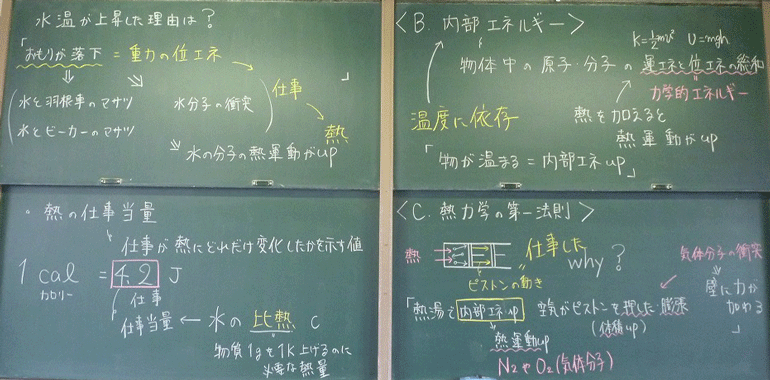 水温が上昇した理由は?
「おもりが落下 = 重力の位エネ
水と羽根車のマサツ
水とビーカーのマサツ
水分子の衝突
水の分子の熱運動がup
」
仕事
熱
・熱の仕事当量
仕事が熱にどれだけ変化したかを示す値
1 cal = 4.2 J
カロリー
仕事
仕事当量 ← 水の比熱 C
物質1gを1K上げるのに
必要な熱量
<B. 内部エネルギー>
K=½mv² U=mgh
物体中の原子・分子の運エネと位エネの総和
力学的エネルギー
温度に依存
熱を加えると
熱運動がup
「物が温まる = 内部エネup」
<C. 熱力学の第一法則>
熱
仕事した
why?
ピストンの動き
気体分子の衝突
壁に力が
加わる
」
「熱湯で内部エネup 空気がピストンを押した 膨張
(体積up)
熱運動up
N₂やO₂(気体分子)